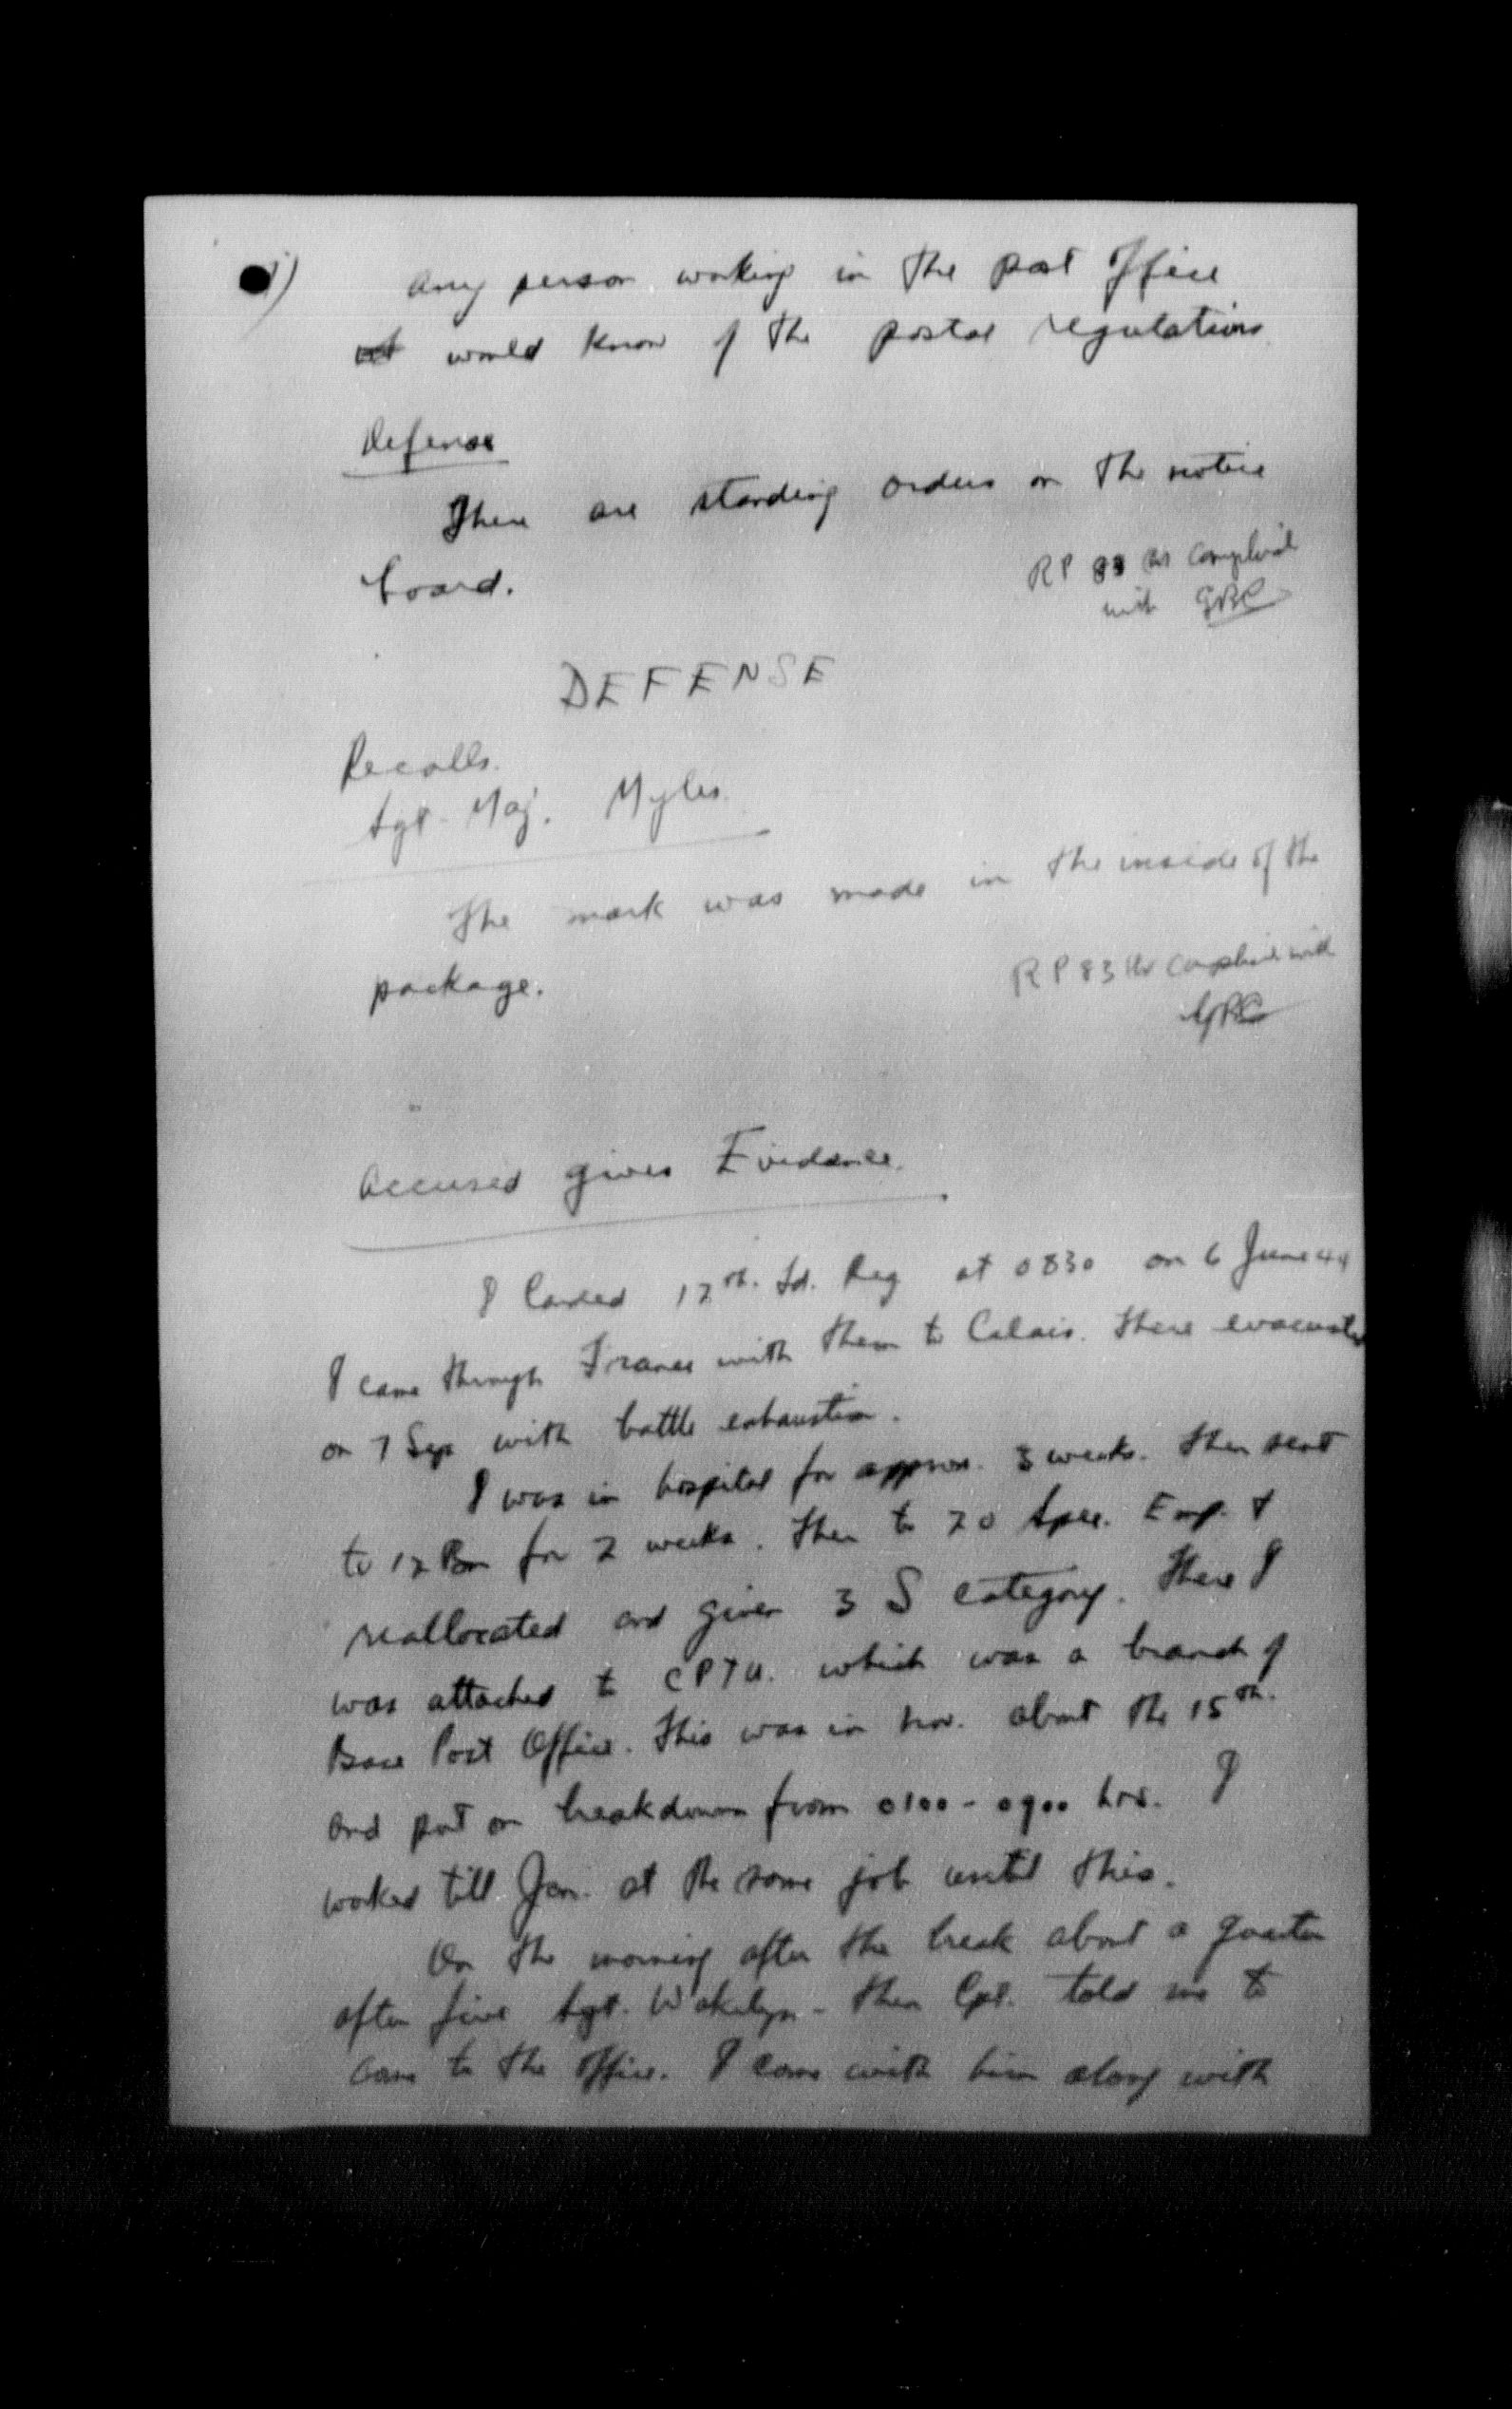 Any person working in the post office
would know of the postal regulations
Defense
There are standing orders on the notice
board.
RP 83 complied
with GRC
DEFENSE
Recalls.
Sgt. Maj. Myles.
The mark was made in the inside of the
package.
RP 83 complied with
GRC
Accused gives Evidence.
I landed 12th. Fd. Reg at 0830 on 6 June 44
I came through France with them to Calais. There evacuated
on 7 Sep with battle exhaustion.
I was in hospital for approx. 3 weeks. Then sent
to 12 Bn for 2 weeks. Then to 20 Spec. Emp. &
reallocated and given 3 S category. There I
was attached to CPTU. which was a branch of
Base Post Office. This was in Nov. about the 15th.
and put on breakdown from 0100 - 0900 hrs. I
worked till Jan. at the same job until this.
On the morning after the break about a quarter
after five Sgt. Wakelyn - then Cpl. told me to
come to the office. I came with him along with